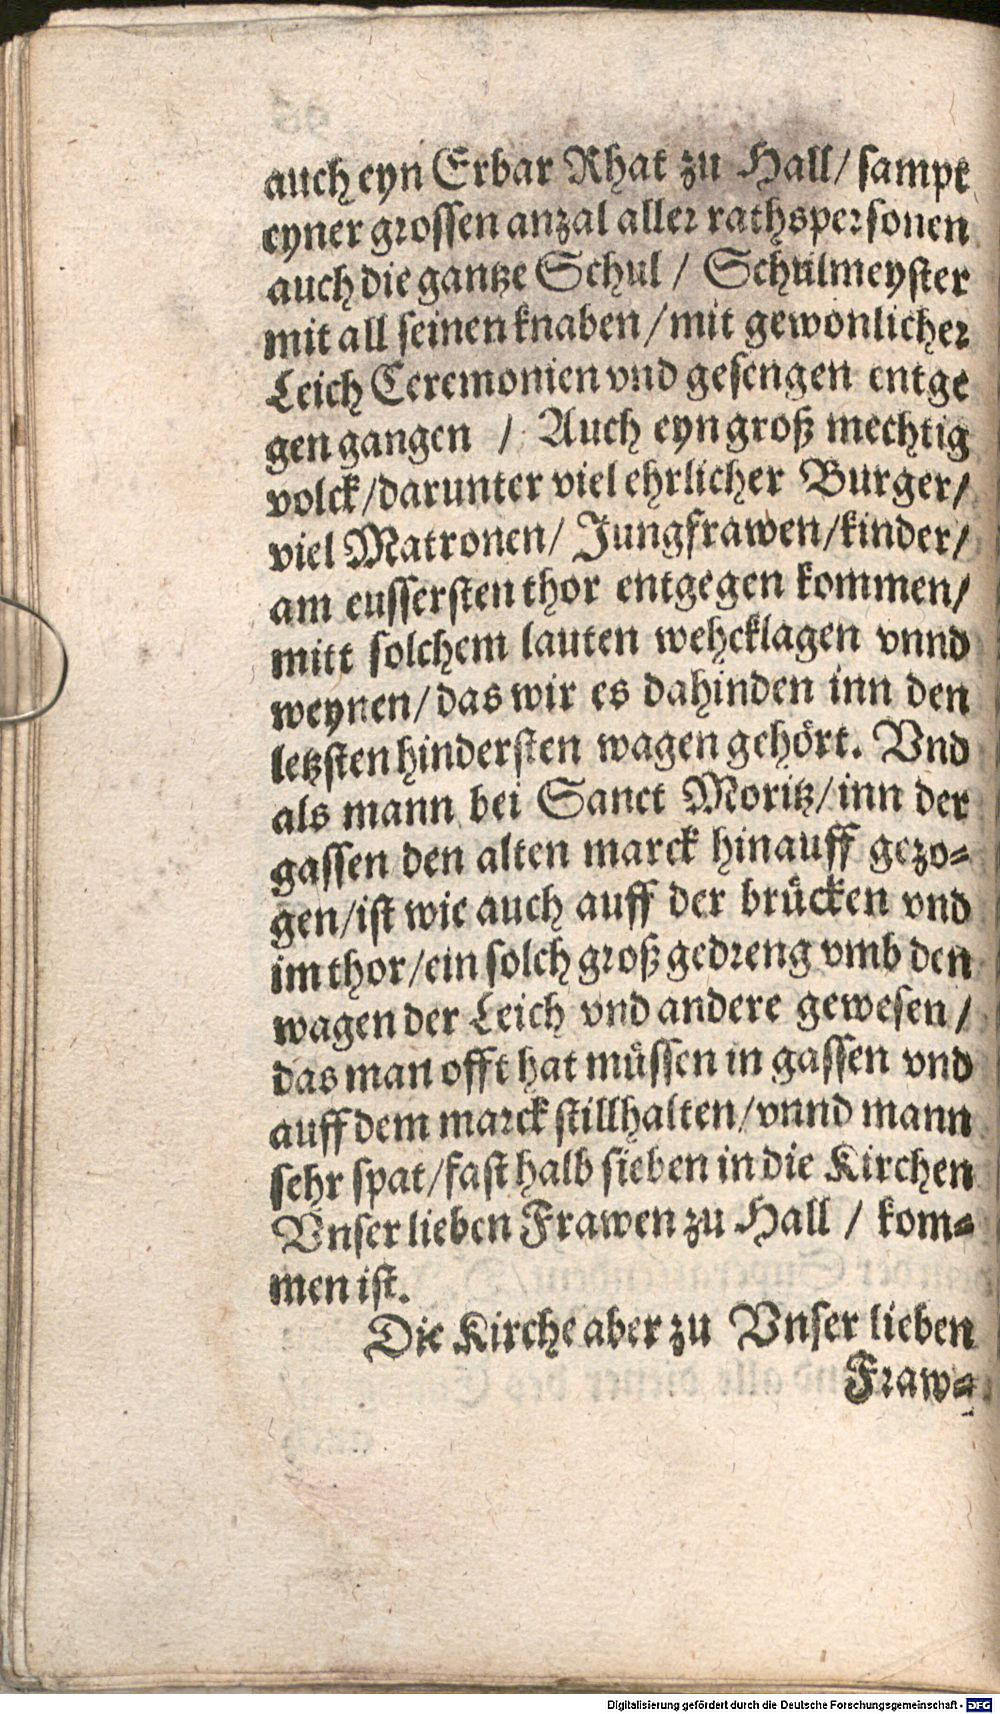 auch eyn Erbar Rhat zu Hall/ sampt
eyner grossen anzal aller rathspersonen
auch die gantze Schul / Schůlmeyster
mit all seinen knaben/mit gewonlicher
Leich Ceremonien vnd gesengen entge
gen gangen / Auch eyn groß mechtig
volck/darunter viel ehrlicher Burger/
viel Matronen/ Jungfrawen/kinder/
am eussersten thor entgegen kommen/
mitt solchem lauten wehcklagen vnnd
weynen/das wir es dahinden inn den
letzsten hindersten wagen gehört. Vnd
als mann bei Sanct Moritz/inn der
gassen den alten marck hinauff gezo-
gen/ist wie auch auff der brücken vnd
im thor/ein solch groß gedreng vmb den
wagen der Leich vnd andere gewesen/
das man offt hat müssen in gassen vnd
auff dem marck stillhalten/vnnd mann
sehr spat/fast halb sieben in die Kirchen
Vnser lieben Frawen zu Hall / kom-
men ist.
Die Kirche aber zu Vnser lieben
Fraw-
Digitalisierung gefördert durch die Deutsche Forschungsgemeinschaft - DFG